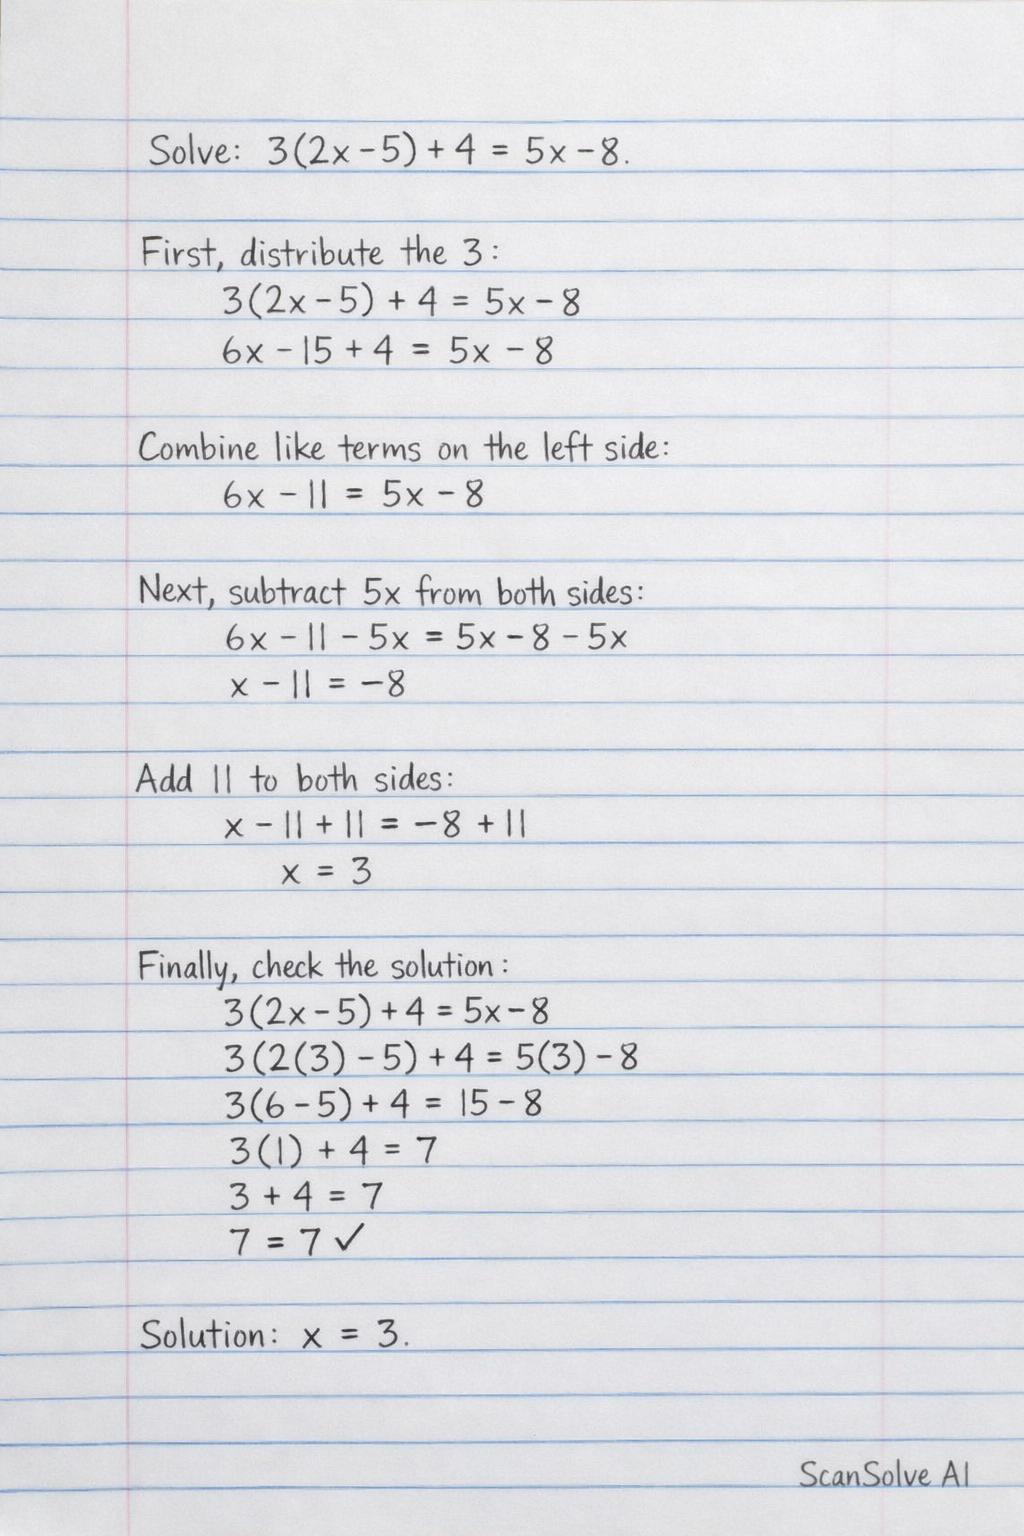 Solve: 3(2x-5)+4 = 5x-8.
First, distribute the 3:
3(2x-5) + 4 = 5x-8
6x -15 + 4 = 5x - 8
Combine like terms on the left side:
6x - 11 = 5x - 8
Next, subtract 5x from both sides:
6x - 11 - 5x = 5x - 8 - 5x
x - 11 = -8
Add 11 to both sides:
x - 11 + 11 = -8 + 11
x = 3
Finally, check the solution:
3(2x-5)+4 = 5x-8
3(2(3) - 5) + 4 = 5(3) - 8
3(6-5) + 4 = 15-8
3(1) + 4 = 7
3 + 4 = 7
7 = 7 ✓
Solution: x = 3.
ScanSolve AI